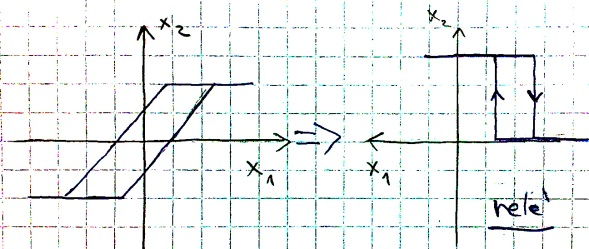 x₂
x₁
⇒
x₂
x₁
relé